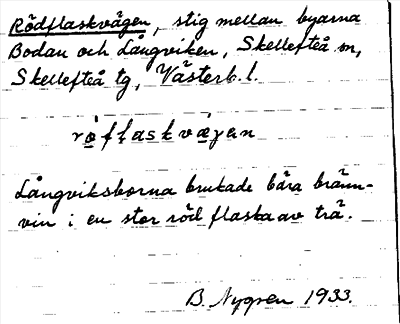 Rödflaskvägen, stig mellan byarna
Bodan och Långviken, Skellefteå sn,
Skellefteå tg, Västerb. l.
röflaskvægan
Långviksborna brukade bära bränn-
vin i en stor röd flaska av trä.
B. Nygren 1933.